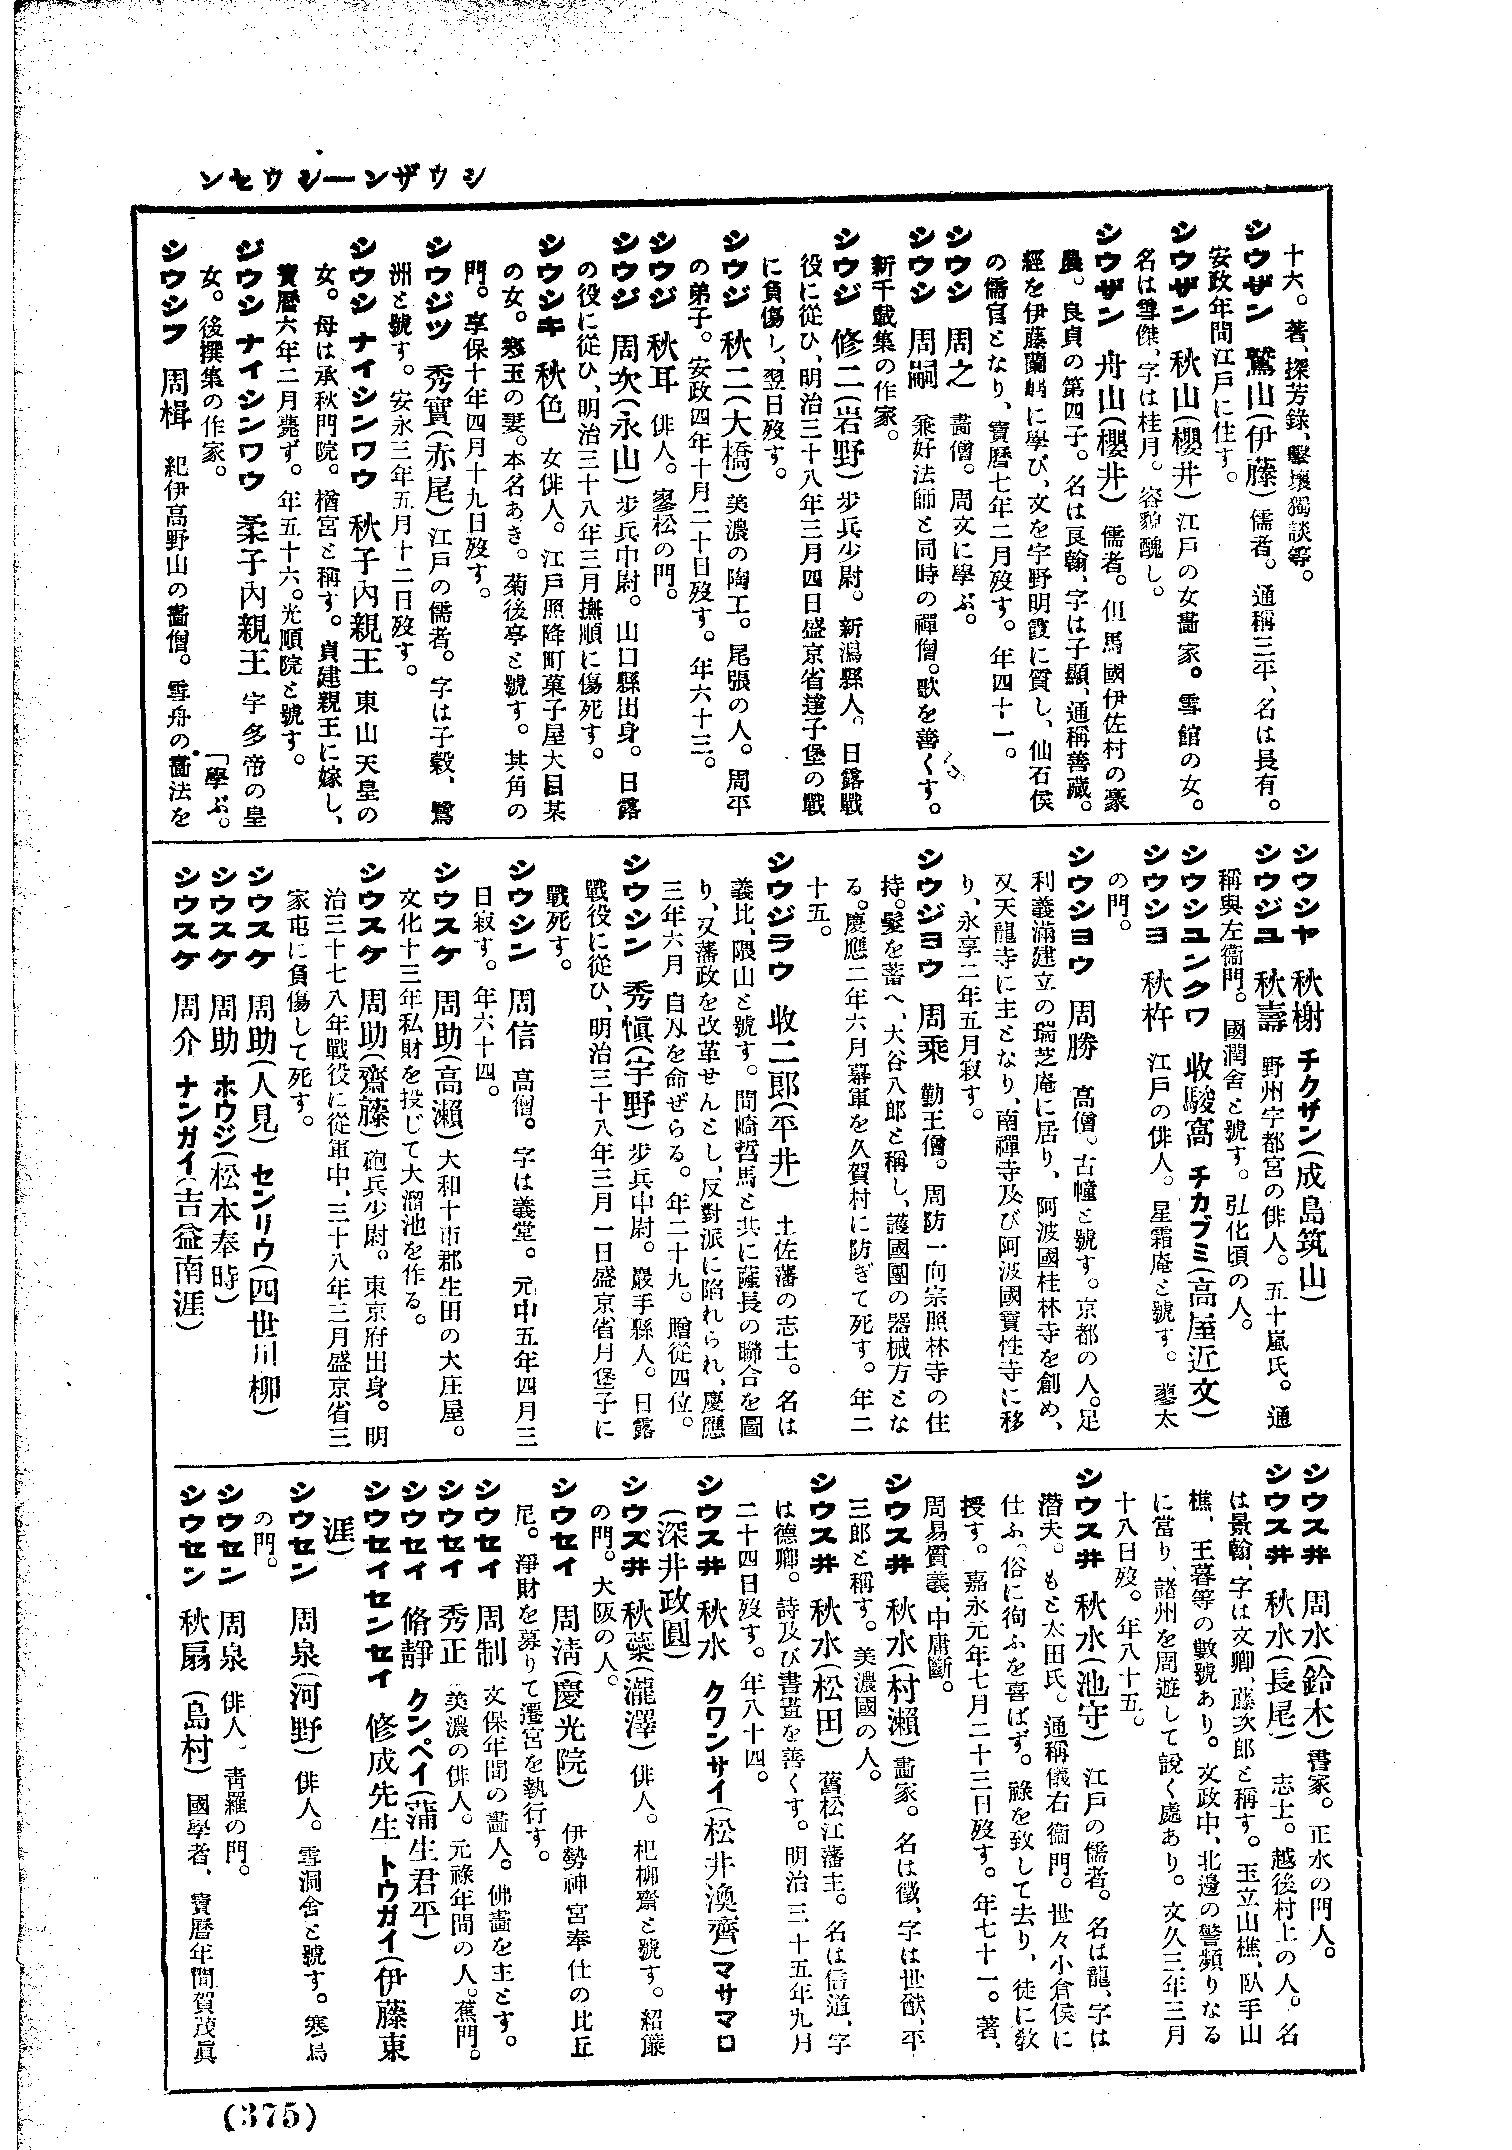 シウザン―シウセン
十六。著、探芳錄、擊壤獨談等。
シウザン 鷲山(伊藤) 儒者。通稱三平、名は長有。
安政年間江戸に住す。
シウザン 秋山(櫻井) 江戸の女畵家。雪館の女。
名は雪傑、字は桂月。容貌醜し。
シウザン 舟山(櫻井) 儒者。但馬國伊佐村の豪
農。良貞の第四子。名は良翰、字は子顯、通稱善藏。
經を伊藤蘭嵎に學び、文を宇野明霞に質し、仙石侯
の儒官となり、寶曆七年二月歿す。年四十一。
シウシ 周之 畵僧。周文に學ぶ。
シウシ 周嗣 兼好法師と同時の禪僧。歌を善くす。
新千載集の作家。
シウジ 修二(岩野) 步兵少尉。新潟縣人。日露戰
役に從ひ、明治三十八年三月四日盛京省達子堡の戰
に負傷し、翌日歿す。
シウジ 秋二(大橋) 美濃の陶工。尾張の人。周平
の弟子。安政四年十月二十日歿す。年六十三。
シウジ 秋耳 俳人。寥松の門。
シウジ 周次(永山) 步兵中尉。山口縣出身。日露
の役に從ひ、明治三十八年三月撫順に傷死す。
シウシキ 秋色 女俳人。江戸照降町菓子屋大目某
の女。寒玉の妻。本名あき。菊後亭と號す。其角の
門。享保十年四月十九日歿す。
シウジツ 秀實(赤尾) 江戸の儒者。字は子穀、鷺
洲と號す。安永三年五月十二日歿す。
シウシ ナイシンワウ 秋子內親王 東山天皇の
女。母は承秋門院。楢宮と稱す。貞建親王に嫁し、
寶曆六年二月薨ず。年五十六。光順院と號す。
ジウシ ナイシンワウ 柔子內親王 宇多帝の皇
女。後撰集の作家。 「學ぶ。
シウシフ 周楫 紀伊高野山の畵僧。雪舟の畵法を
シウシヤ 秋榭 チクザン(成島筑山)
シウジユ 秋壽 野州宇都宮の俳人。五十嵐氏。通
稱與左衞門。國潤舍と號す。弘化頃の人。
シウシユンクワ 收駿窩 チカブミ(高屋近文)
シウシヨ 秋杵 江戸の俳人。星霜庵と號す。蓼太
の門。
シウシヨウ 周勝 高僧。古幢と號す。京都の人。足
利義滿建立の瑞芝庵に居り、阿波國桂林寺を創め、
又天龍寺に主となり、南禪寺及び阿波國寶性寺に移
り、永享二年五月寂す。
シウジヨウ 周乘 勤王僧。周防一向宗照林寺の住
持。髮を蓄へ、大谷八郎と稱し、護國團の器械方とな
る。慶應二年六月幕軍を久賀村に防ぎて死す。年二
十五。
シウジラウ 收二郎(平井) 土佐藩の志士。名は
義比、隈山と號す。間崎哲馬と共に薩長の聯合を圖
り、又藩政を改革せんとし、反對派に陷れられ、慶應
三年六月自刄を命ぜらる。年二十九。贈從四位。
シウシン 秀愼(宇野) 步兵中尉。巖手縣人。日露
戰役に從ひ、明治三十八年三月一日盛京省月堡子に
戰死す。
シウシン 周信 高僧。字は義堂。元中五年四月三
日寂す。年六十四。
シウスケ 周助(高瀨) 大和十市郡生田の大庄屋。
文化十三年私財を投じて大溜池を作る。
シウスケ 周助(齋藤) 砲兵少尉。東京府出身。明
治三十七八年戰役に從軍中、三十八年三月盛京省三
家屯に負傷して死す。
シウスケ 周助(人見) センリウ(四世川柳)
シウスケ 周助 ホウジ(松本奉時)
シウスケ 周介 ナンガイ(吉益南涯)
シウス井 周水(鈴木) 書家。正水の門人。
シウス井 秋水(長尾) 志士。越後村上の人。名
は景翰、字は文卿、藤次郎と稱す。玉立山樵、臥手山
樵、王暮等の數號あり。文政中、北邊の警頻りなる
に當り、諸州を周遊して說く處あり。文久三年三月
十八日歿。年八十五。
シウス井 秋水(池守) 江戸の儒者。名は龍、字は
潛夫。もと太田氏。通稱儀右衞門。世々小倉侯に
仕ふ。俗に徇ふを喜ばず。祿を致して去り、徒に敎
授す。嘉永元年七月二十三日歿す。年七十一。著、
周易質義、中庸斷。
シウス井 秋水(村瀨) 畵家。名は徵、字は世猷、平
三郎と稱す。美濃國の人。
シウス井 秋水(松田) 舊松江藩主。名は信道、字
は德卿。詩及び書畫を善くす。明治三十五年九月
二十四日歿す。年八十四。
シウス井 秋水 クワンサイ(松井渙齋) マサマロ
(深井政圓)
シウズ井 秋蘂(瀧澤) 俳人。杷柳齋と號す。紹簾
の門。大阪の人。
シウセイ 周淸(慶光院) 伊勢神宮奉仕の比丘
尼。淨財を募りて遷宮を執行す。
シウセイ 周制 文保年間の畵人。佛畵を主とす。
シウセイ 秀正 美濃の俳人。元祿年間の人。蕉門。
シウセイ 脩靜 クンペイ(蒲生君平)
シウセイセンセイ 修成先生 トウガイ(伊藤東
涯)
シウセン 周泉(河野) 俳人。雪洞舍と號す。寒烏
の門。
シウセン 周泉 俳人、靑羅の門。
シウセン 秋扇(島村) 國學者、寶曆年間賀茂眞
(375)